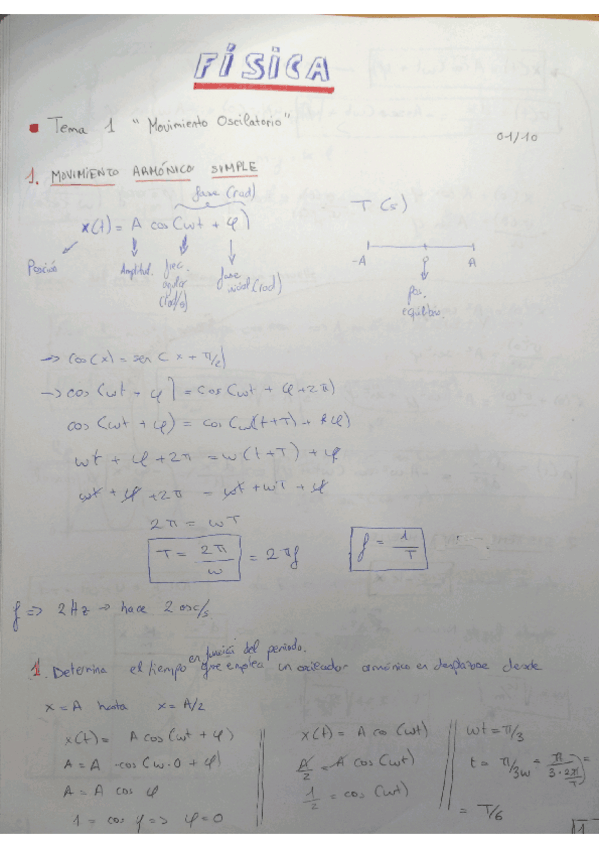 FÍSICA
Tema 1 "Movimiento Oscilatorio"
01/10
1. MOVIMIENTO ARMÓNICO SIMPLE
fase (rad)
x(t) = A cos(ωt + φ)
T (s)
Posición
Amplitud.
frec. angular (rad/s)
fase inicial (rad)
-A
0
A
pos. equilibrio.
→ cos(x) = sen(x + π/2)
→ cos(ωt + φ) = cos(ωt + φ + 2π)
cos(ωt + φ) = cos(ω(t+T) + φ)
ωt + φ + 2π = ω(t+T) + φ
ωt + φ + 2π = ωt + ωT + φ
2π = ωT
T = 2π/ω = 2πf
f = 1/T
f => 2 Hz → hace 2 osc/s
en función del periodo.
1. Determina el tiempo que emplea un oscilador armónico en desplazarse desde
x = A hasta x = A/2
x(t) = A cos(ωt + φ)
A = A · cos(ω·0 + φ)
A = A cos φ
1 = cos φ => φ = 0
x(t) = A cos(ωt)
A/2 = A cos(ωt)
1/2 = cos(ωt)
ωt = π/3
t = π/3ω = π/(3·2π/T) =
= T/6